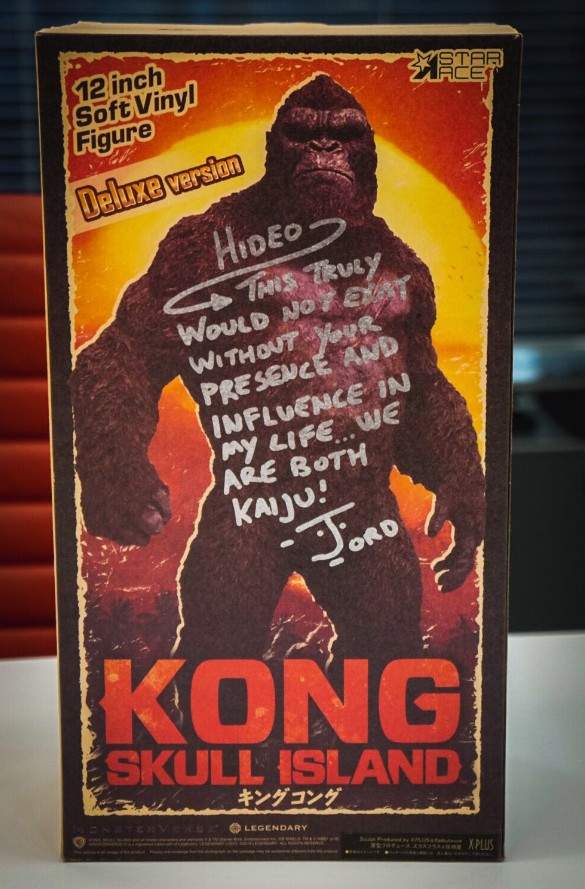 12 inch
Soft Vinyl
Figure
STAR
ACE
Deluxe version
HIDEO
THIS TRULY
WOULD NOT EXIST
WITHOUT YOUR
PRESENCE AND
INFLUENCE IN
MY LIFE... WE
ARE BOTH
KAIJU!
- JORD
KONG
SKULL ISLAND
キングコング
MONSTERVERSE
LEGENDARY
X PLUS